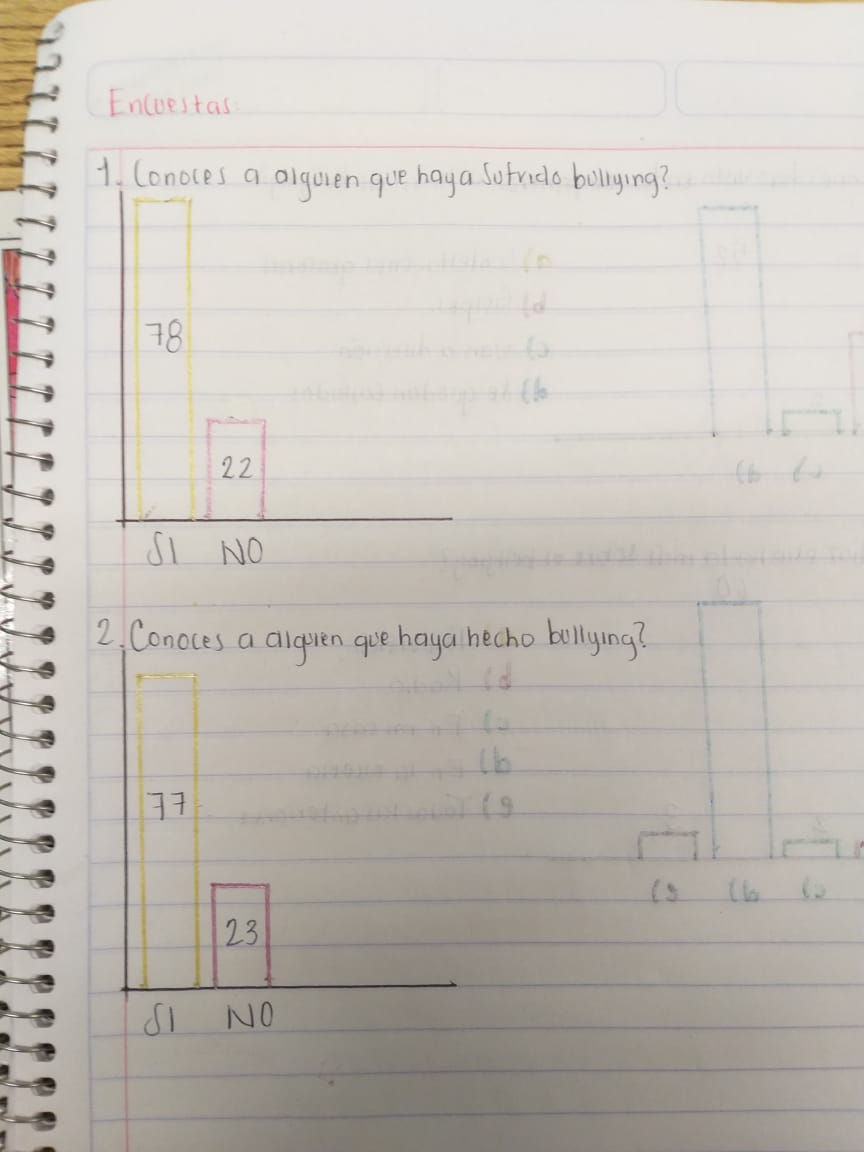 Encuestas
1. Conoces a alguien que haya sufrido bullying?
78
22
SI NO
2. Conoces a alguien que haya hecho bullying?
77
23
SI NO